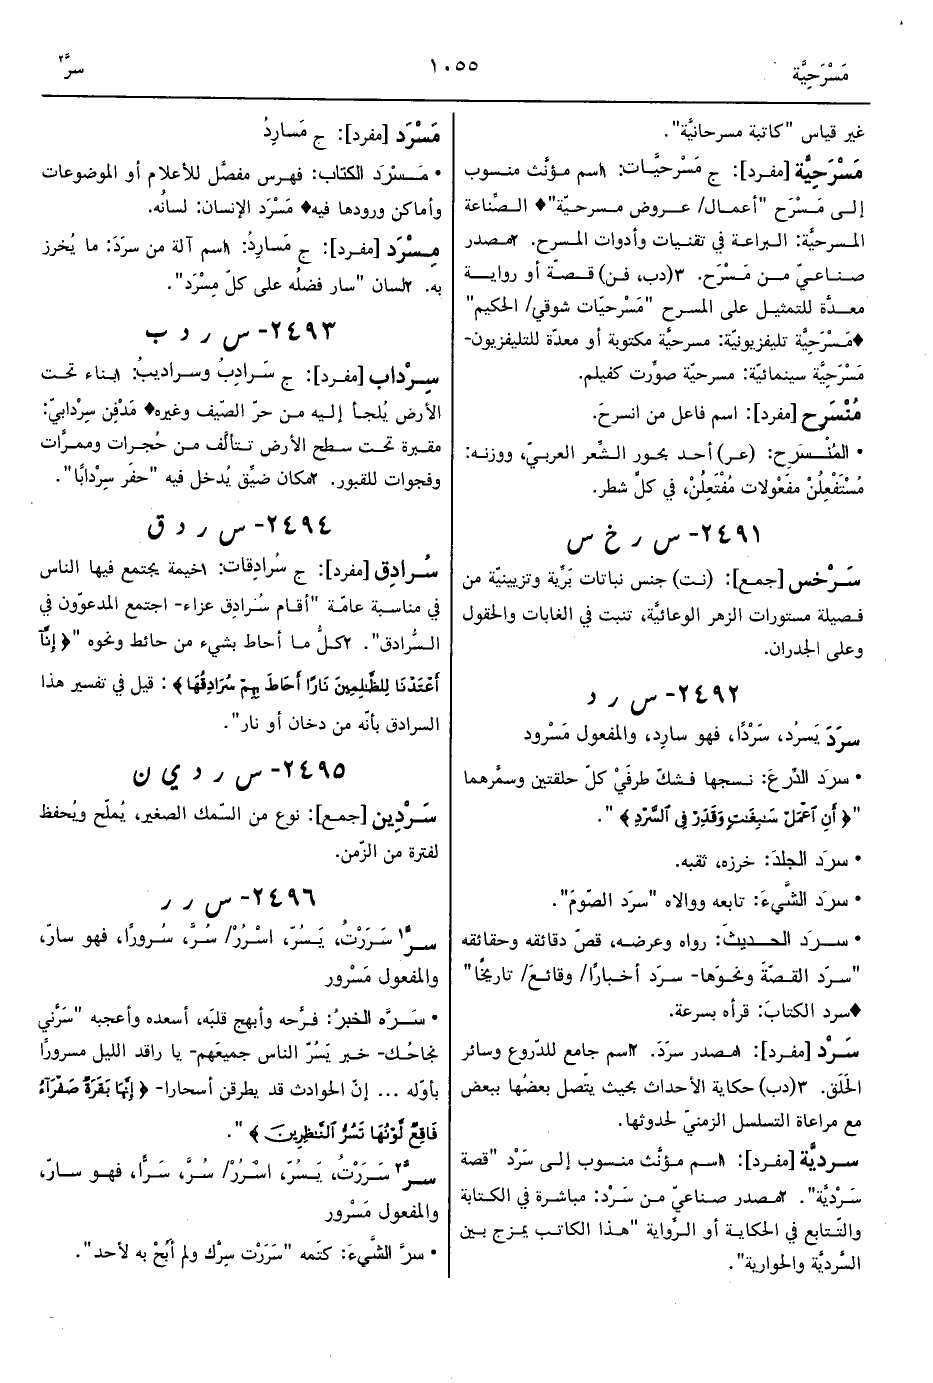 مَسْرَحِيَّة
١٠٥٥
سرَّ٢
غير قياس "كاتبة مسرحانيَّة".
مَسْرَحِيَّة [مفرد]: ج مَسْرحيَّات: ١اسم مؤنَّث منسوب
إلى مَسْرَح "أعمال/ عروض مسرحيّة"♦ الصِّناعة
المسرحيَّة: البراعة في تقنيات وأدوات المسرح. ٢مصدر
صناعيّ من مَسْرَح. ٣(دب، فن) قصّة أو رواية
معدَّة للتمثيل على المسرح "مَسْرحيّات شوقي/ الحكيم"
♦مَسْرَحيَّة تليفزيونيَّة: مسرحيَّة مكتوبة أو معدّة للتليفزيون-
مَسْرَحيَّة سينمائيَّة: مسرحيّة صوِّرت كفيلم.
مُنْسَرِح [مفرد]: اسم فاعل من انسرحَ.
• المُنْسَرِح: (عر) أحد بحور الشِّعر العربيّ، ووزنه:
مُسْتَفْعِلُنْ مفَعُولات مُفْتَعِلُنْ، في كلّ شطر.
٢٤٩١- س ر خ س
سَرْخس [جمع]: (نت) جنس نباتات بَرِّية وتزيينيّة من
فصيلة مستورات الزهر الوعائيَّة، تنبت في الغابات والحقول
وعلى الجدران.
٢٤٩٢- س ر د
سرَدَ يَسرُد، سَرْدًا، فهو سارِد، والمفعول مَسْرود
• سرَد الدِّرعَ: نسجها فشكّ طرفَيْ كلّ حلقتين وسمَّرهما
"﴿ أَنِ ٱعْمَلْ سَٰبِغَٰتٍ وَقَدِّرْ فِى ٱلسَّرْدِ ﴾".
• سرَد الجلدَ: خرزه، ثقبه.
• سرَد الشَّيءَ: تابعه ووالاه "سرَد الصّومَ".
• سرَد الحديثَ: رواه وعرضه، قصّ دقائقه وحقائقه
"سرَد القصّةَ ونحوَها- سرَد أخبارًا/ وقائعَ/ تاريخًا"
♦سرد الكتابَ: قرأه بسرعة.
سَرْد [مفرد]: ١مصدر سرَدَ. ٢اسم جامع للدّروع وسائر
الحَلَق. ٣(دب) حكاية الأحداث بحيث يتّصل بعضُها ببعض
مع مراعاة التسلسل الزمنيّ لحدوثها.
سرديَّة [مفرد]: ١اسم مؤنَّث منسوب إلى سَرْد "قصة
سَرْديَّة". ٢مصدر صناعيّ من سَرْد: مباشرة في الكتابة
والتّتابع في الحكاية أو الرِّواية "هذا الكاتب يمزج بين
السَّرديَّة والحوارية".
مَسْرَد [مفرد]: ج مَسارِدُ
• مَسْرَد الكتاب: فهرس مفصَّل للأعلام أو الموضوعات
وأماكن ورودها فيه♦ مَسْرَد الإنسان: لسانُه.
مِسْرَد [مفرد]: ج مَسارِدُ: ١اسم آلة من سرَدَ: ما يُخرز
به. ٢لسان "سار فضلُه على كلّ مِسْرَد".
٢٤٩٣- س ر د ب
سِرْداب [مفرد]: ج سَرادِبُ وسراديبُ: ١بناء تحت
الأرض يُلجأ إليه من حرّ الصّيف وغيره♦ مَدْفِن سِرْدابيّ:
مقبرة تحت سطح الأرض تتألَّف من حُجرات وممرَّات
وفجوات للقبور. ٢مكان ضيِّق يُدخل فيه "حفَر سِرْدابًا".
٢٤٩٤- س ر د ق
سُرادِق [مفرد]: ج سُرادِقات: ١خيمة يجتمع فيها الناس
في مناسبة عامّة "أقام سُرَادِق عزاء- اجتمع المدعوّون في
السُّرادق". ٢كلُّ ما أحاط بشيء من حائط ونحوه "﴿ إِنَّآ
أَعْتَدْنَا لِلظَّٰلِمِينَ نَارًا أَحَاطَ بِهِمْ سُرَادِقُهَا ﴾: قيل في تفسير هذا
السرادق بأنّه من دخان أو نار".
٢٤٩٥- س ر د ي ن
سَرْدِين [جمع]: نوع من السّمك الصغير، يُملّح ويُحفظ
لفترة من الزّمن.
٢٤٩٦- س ر ر
سرَّ١ سَرَرْتُ، يَسُرّ، اسْرُرْ/ سُرَّ، سُرورًا، فهو سارّ،
والمفعول مَسْرور
• سَرَّه الخبرُ: فرَّحه وأبهج قلبَه، أسعده وأعجبه "سَرَّني
نجاحُك- خبر يَسُرّ الناس جميعَهم- يا راقد الليل مسرورًا
بأوّله ... إنّ الحوادث قد يطرقن أسحارا- ﴿ إِنَّهَا بَقَرَةٌ صَفْرَآءُ
فَاقِعٌ لَّوْنُهَا تَسُرُّ ٱلنَّٰظِرِينَ ﴾".
سرَّ٢ سَرَرْتُ، يَسُرّ، اسْرُرْ/ سُرَّ، سَرًّا، فهو سارّ،
والمفعول مَسْرور
• سرَّ الشَّيءَ: كتَمه "سَرَرْت سِرَّك ولم أبُحْ به لأحد".